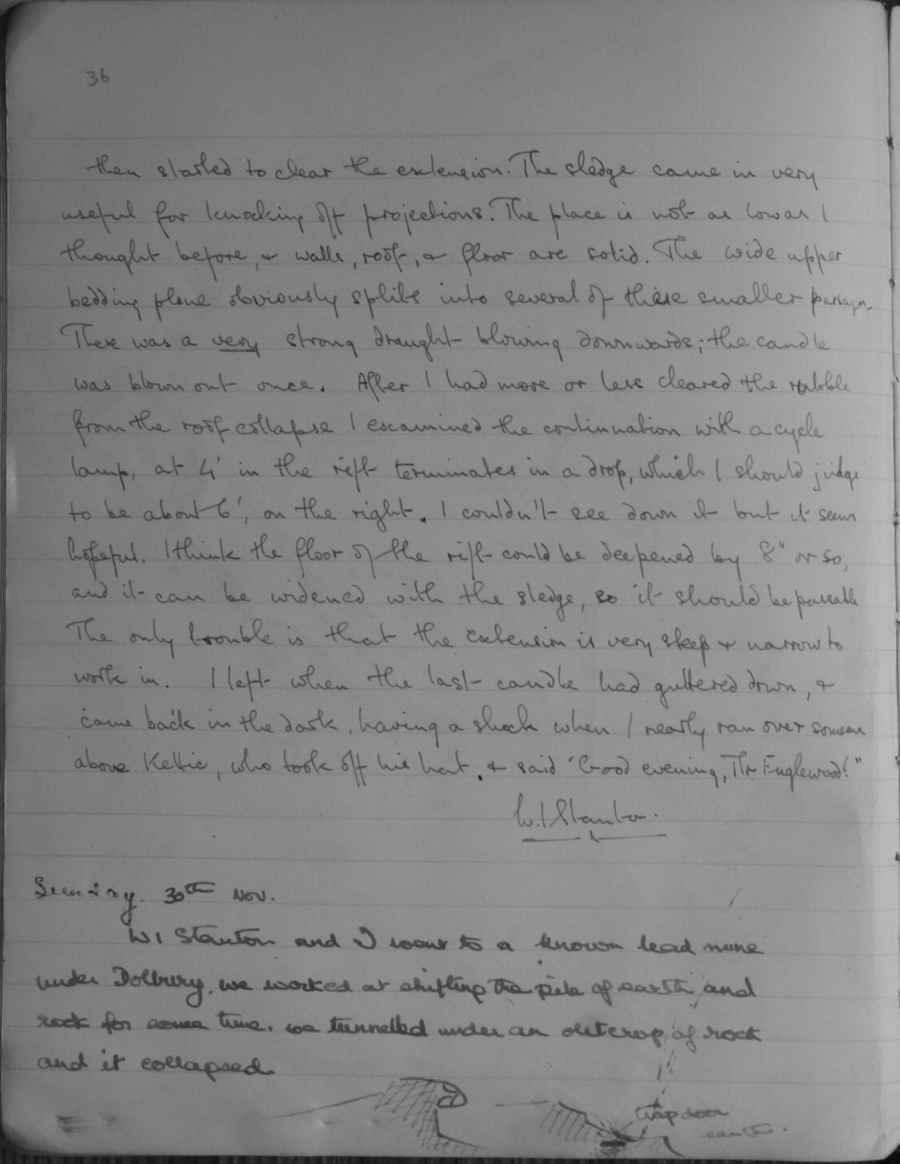 36
then started to clear the extension. The sledge came in very
useful for knocking off projections. The place is not as low as I
thought before, + walls, roof, + floor are solid. The wide upper
bedding plane obviously splits into several of these smaller
There was a very strong draught blowing downwards; the candle
was blown out once. After I had more or less cleared the rubble
from the roof collapse I examined the continuation with a cycle
lamp, at 4' in the rift terminates in a drop, which I should judge
to be about 6', on the right. I couldn't see down it but it seems
hopeful. I think the floor of the rift could be deepened by 8" or so,
and it can be widened with the sledge, so it should be passable
The only trouble is that the extension is very steep + narrow to
work in. I left when the last candle had guttered down, +
came back in the dark, having a shock when I nearly ran over someone
above Kettie, who took off his hat, + said "Good evening, Mr Englewood!"
W.I Stanton.
Sunday. 30th Nov.
W I Stanton and I went to a known lead mine
under Dolbury. we worked at shifting the pile of earth and
rock for some time. we tunnelled under an outcrop of rock
and it collapsed.
trapdoor
earth.